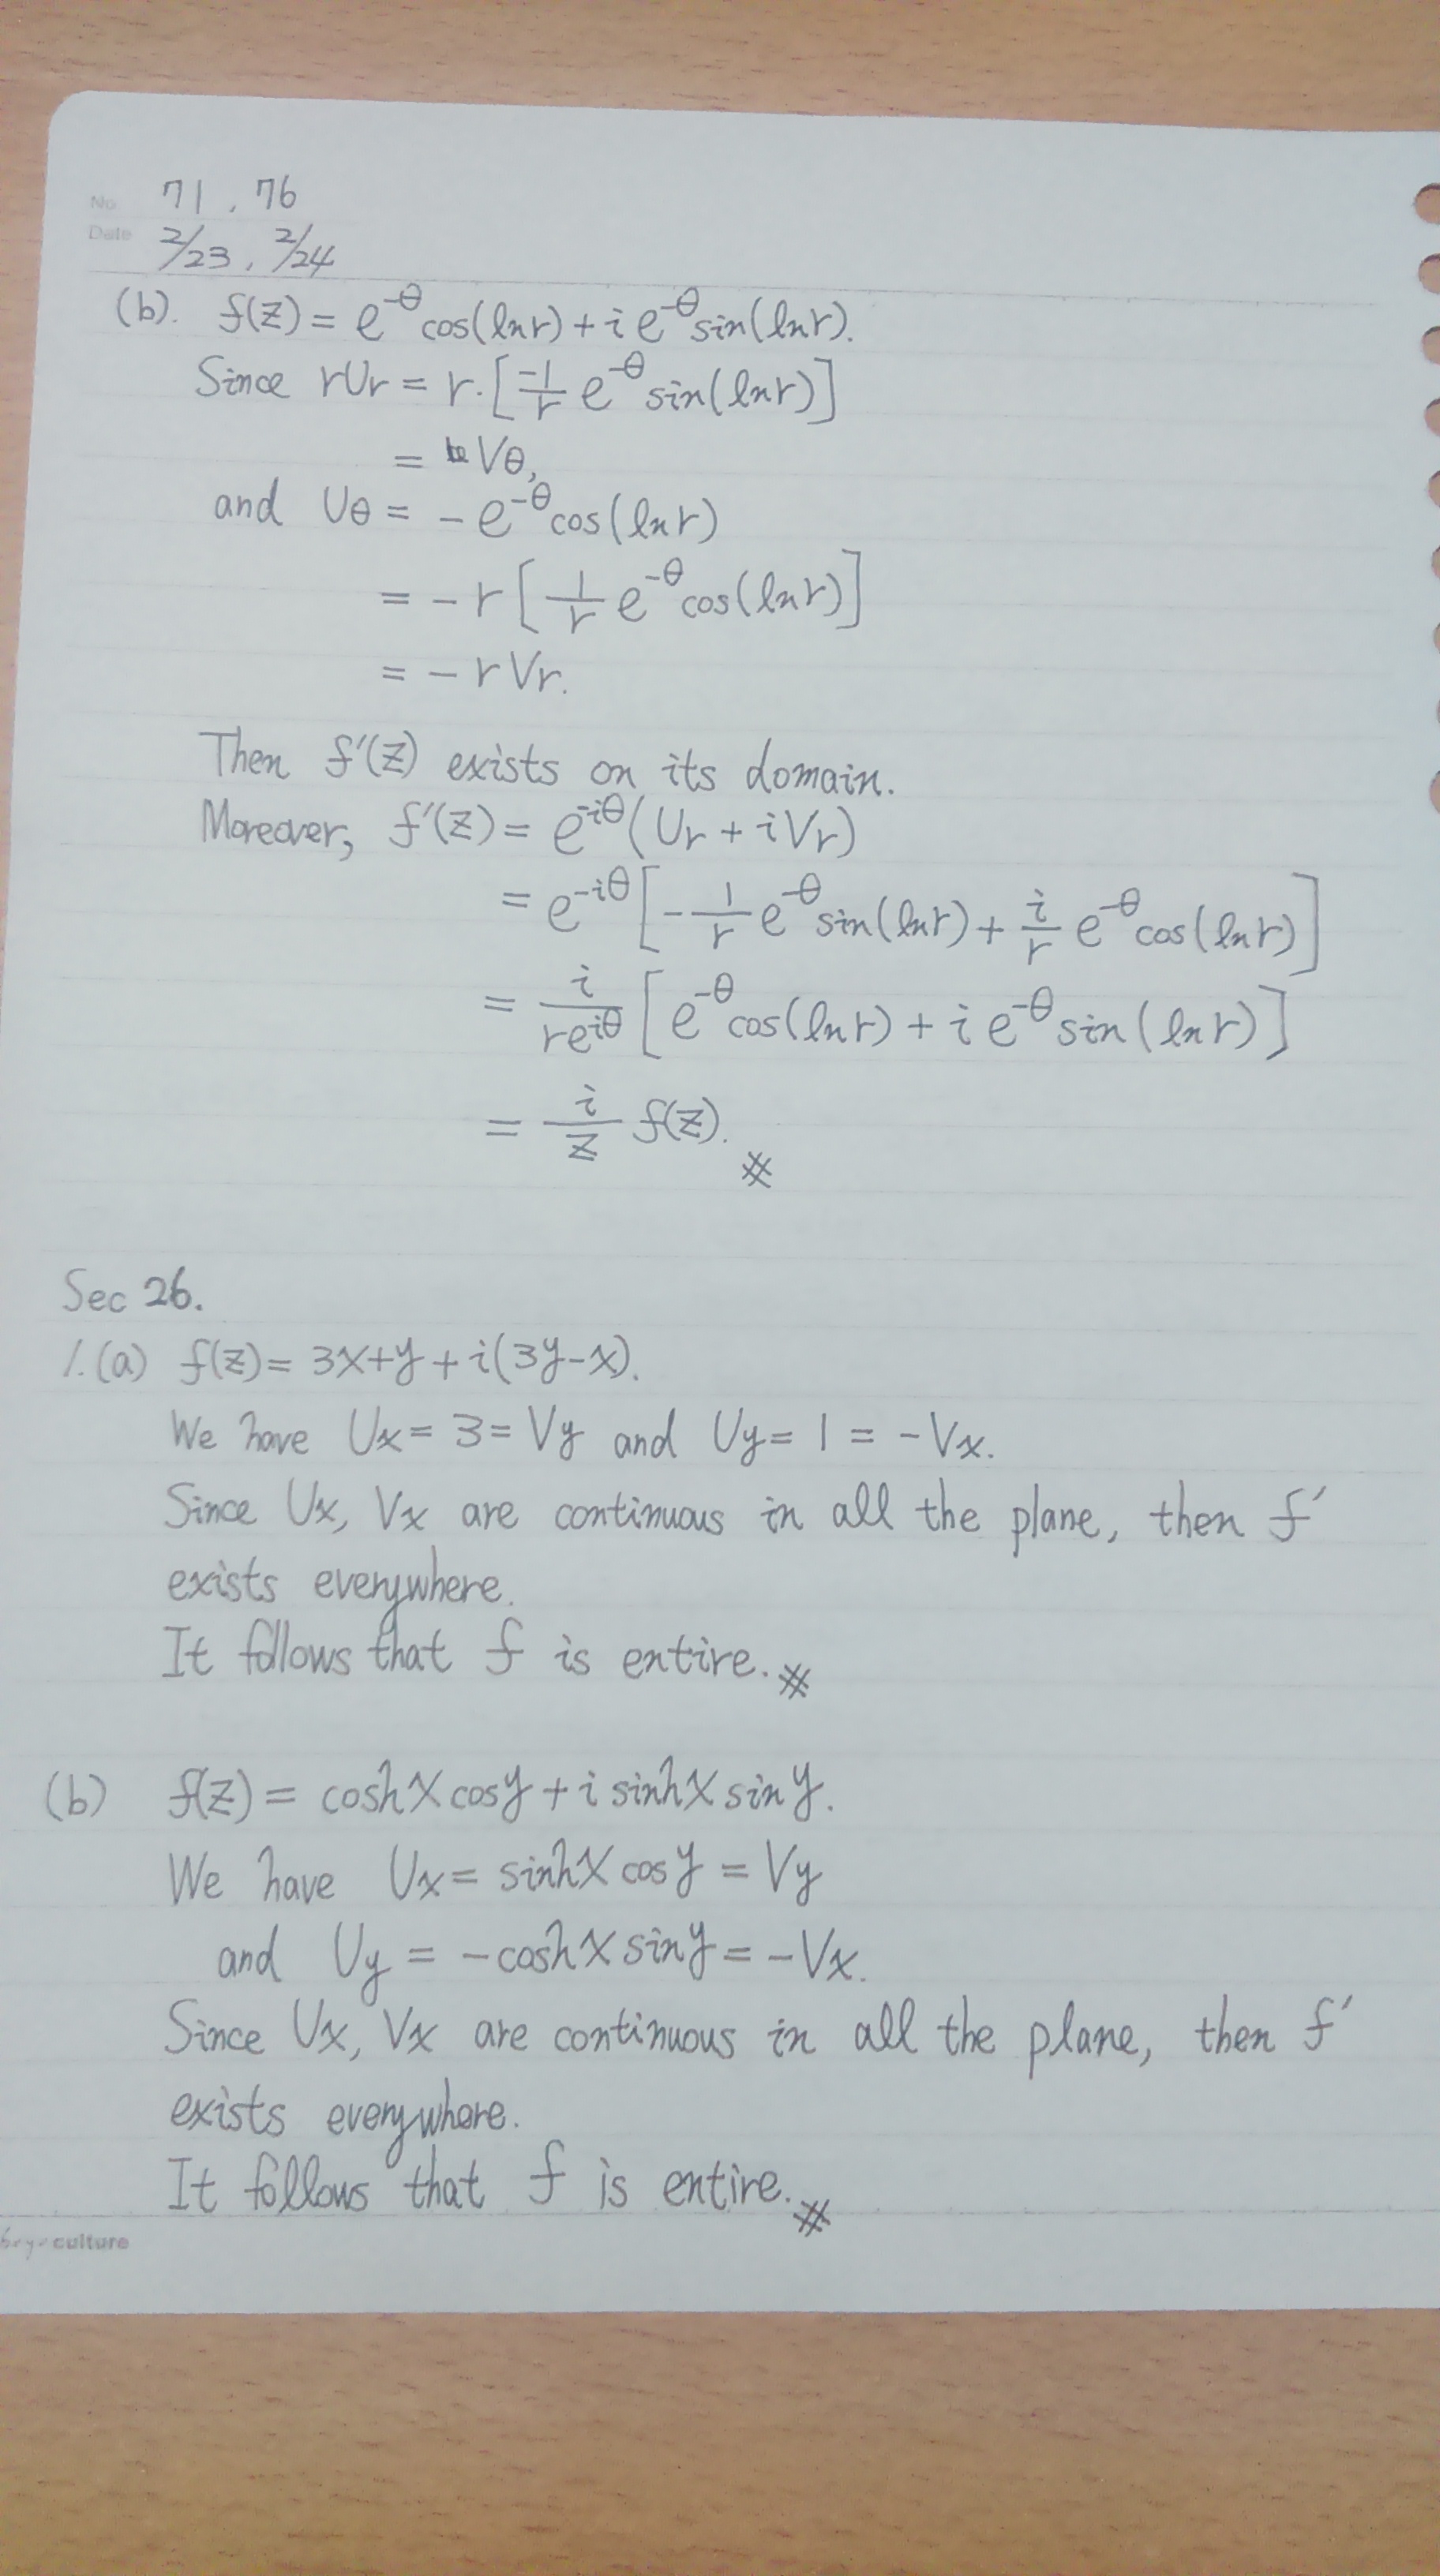 No. 71, 76
Date 2/23, 2/24
(b). f(z) = e^{-θ}cos(ln r) + i e^{-θ}sin(ln r).
Since rUr = r·[-1/r e^{-θ}sin(ln r)]
= Vθ,
and Uθ = -e^{-θ}cos(ln r)
= -r[1/r e^{-θ}cos(ln r)]
= -rVr.
Then f'(z) exists on its domain.
Moreover, f'(z) = e^{-iθ}(Ur + iVr)
= e^{-iθ}[-1/r e^{-θ}sin(ln r) + i/r e^{-θ}cos(ln r)]
= i/re^{iθ} [e^{-θ}cos(ln r) + i e^{-θ}sin(ln r)]
= i/z f(z). ※
Sec 26.
1.(a) f(z) = 3x+y+i(3y-x).
We have Ux = 3 = Vy and Uy = 1 = -Vx.
Since Ux, Vx are continuous in all the plane, then f'
exists everywhere.
It follows that f is entire. ※
(b) f(z) = coshx cosy + i sinhx siny.
We have Ux = sinhx cosy = Vy
and Uy = -coshx siny = -Vx.
Since Ux, Vx are continuous in all the plane, then f'
exists everywhere.
It follows that f is entire. ※
culture